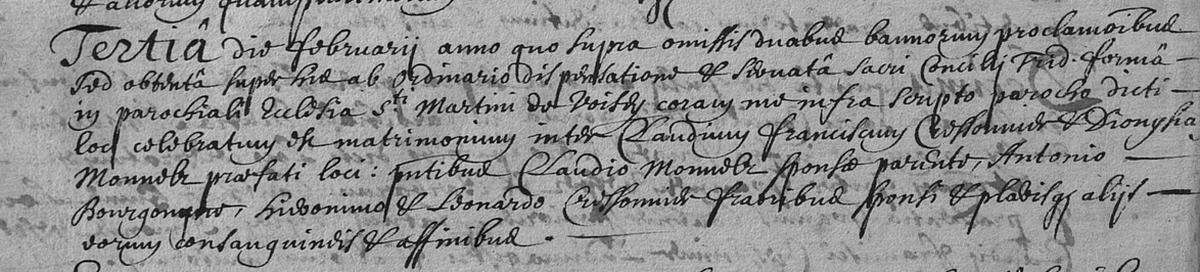 Tertiâ die februarij anno quo supra omissis duabus bannorum proclamoibus
sed obtentâ super his ab ordinario dispensatione & servatâ sacri Concilij Trid. formâ
in parochiali Ecclesia Sti Martini de coram me infra scripto parocho dicti
loci celebratum est matrimonium inter Claudium franciscum & Dionysia
Monnebz præfati loci: pntibus Claudio Monnebz sponsæ parente, Antonio
Bourgongne, hieronimo & Leonardo fratribus sponsi & plæisqs alijs
eorum consanguineis & affinibus.